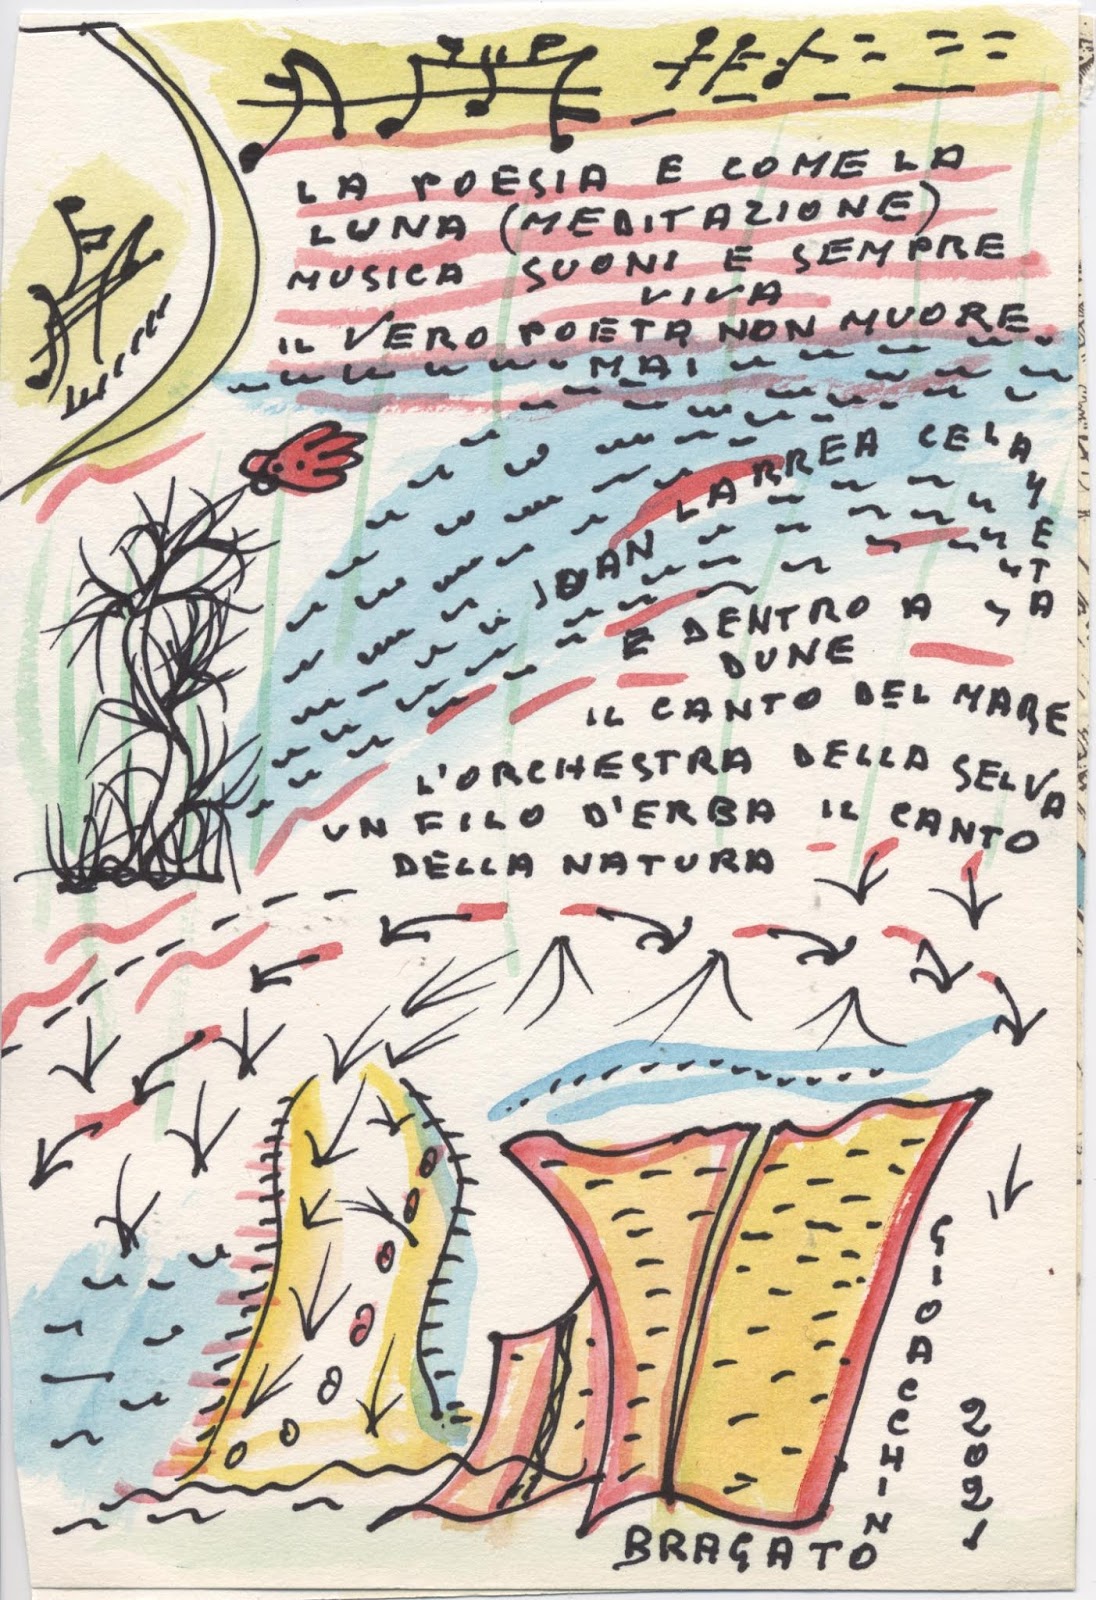 LA POESIA E COME LA
LUNA (MEDITAZIONE)
MUSICA SUONI E SEMPRE
VIVA
IL VERO POETA NON MUORE
MAI
JOAN LARREA CELAYETA
E DENTRO A
DUNE
IL CANTO DEL MARE
L'ORCHESTRA DELLA SELVA
UN FILO D'ERBA IL CANTO
DELLA NATURA
GIOACCHINO
2021
BRAGATO